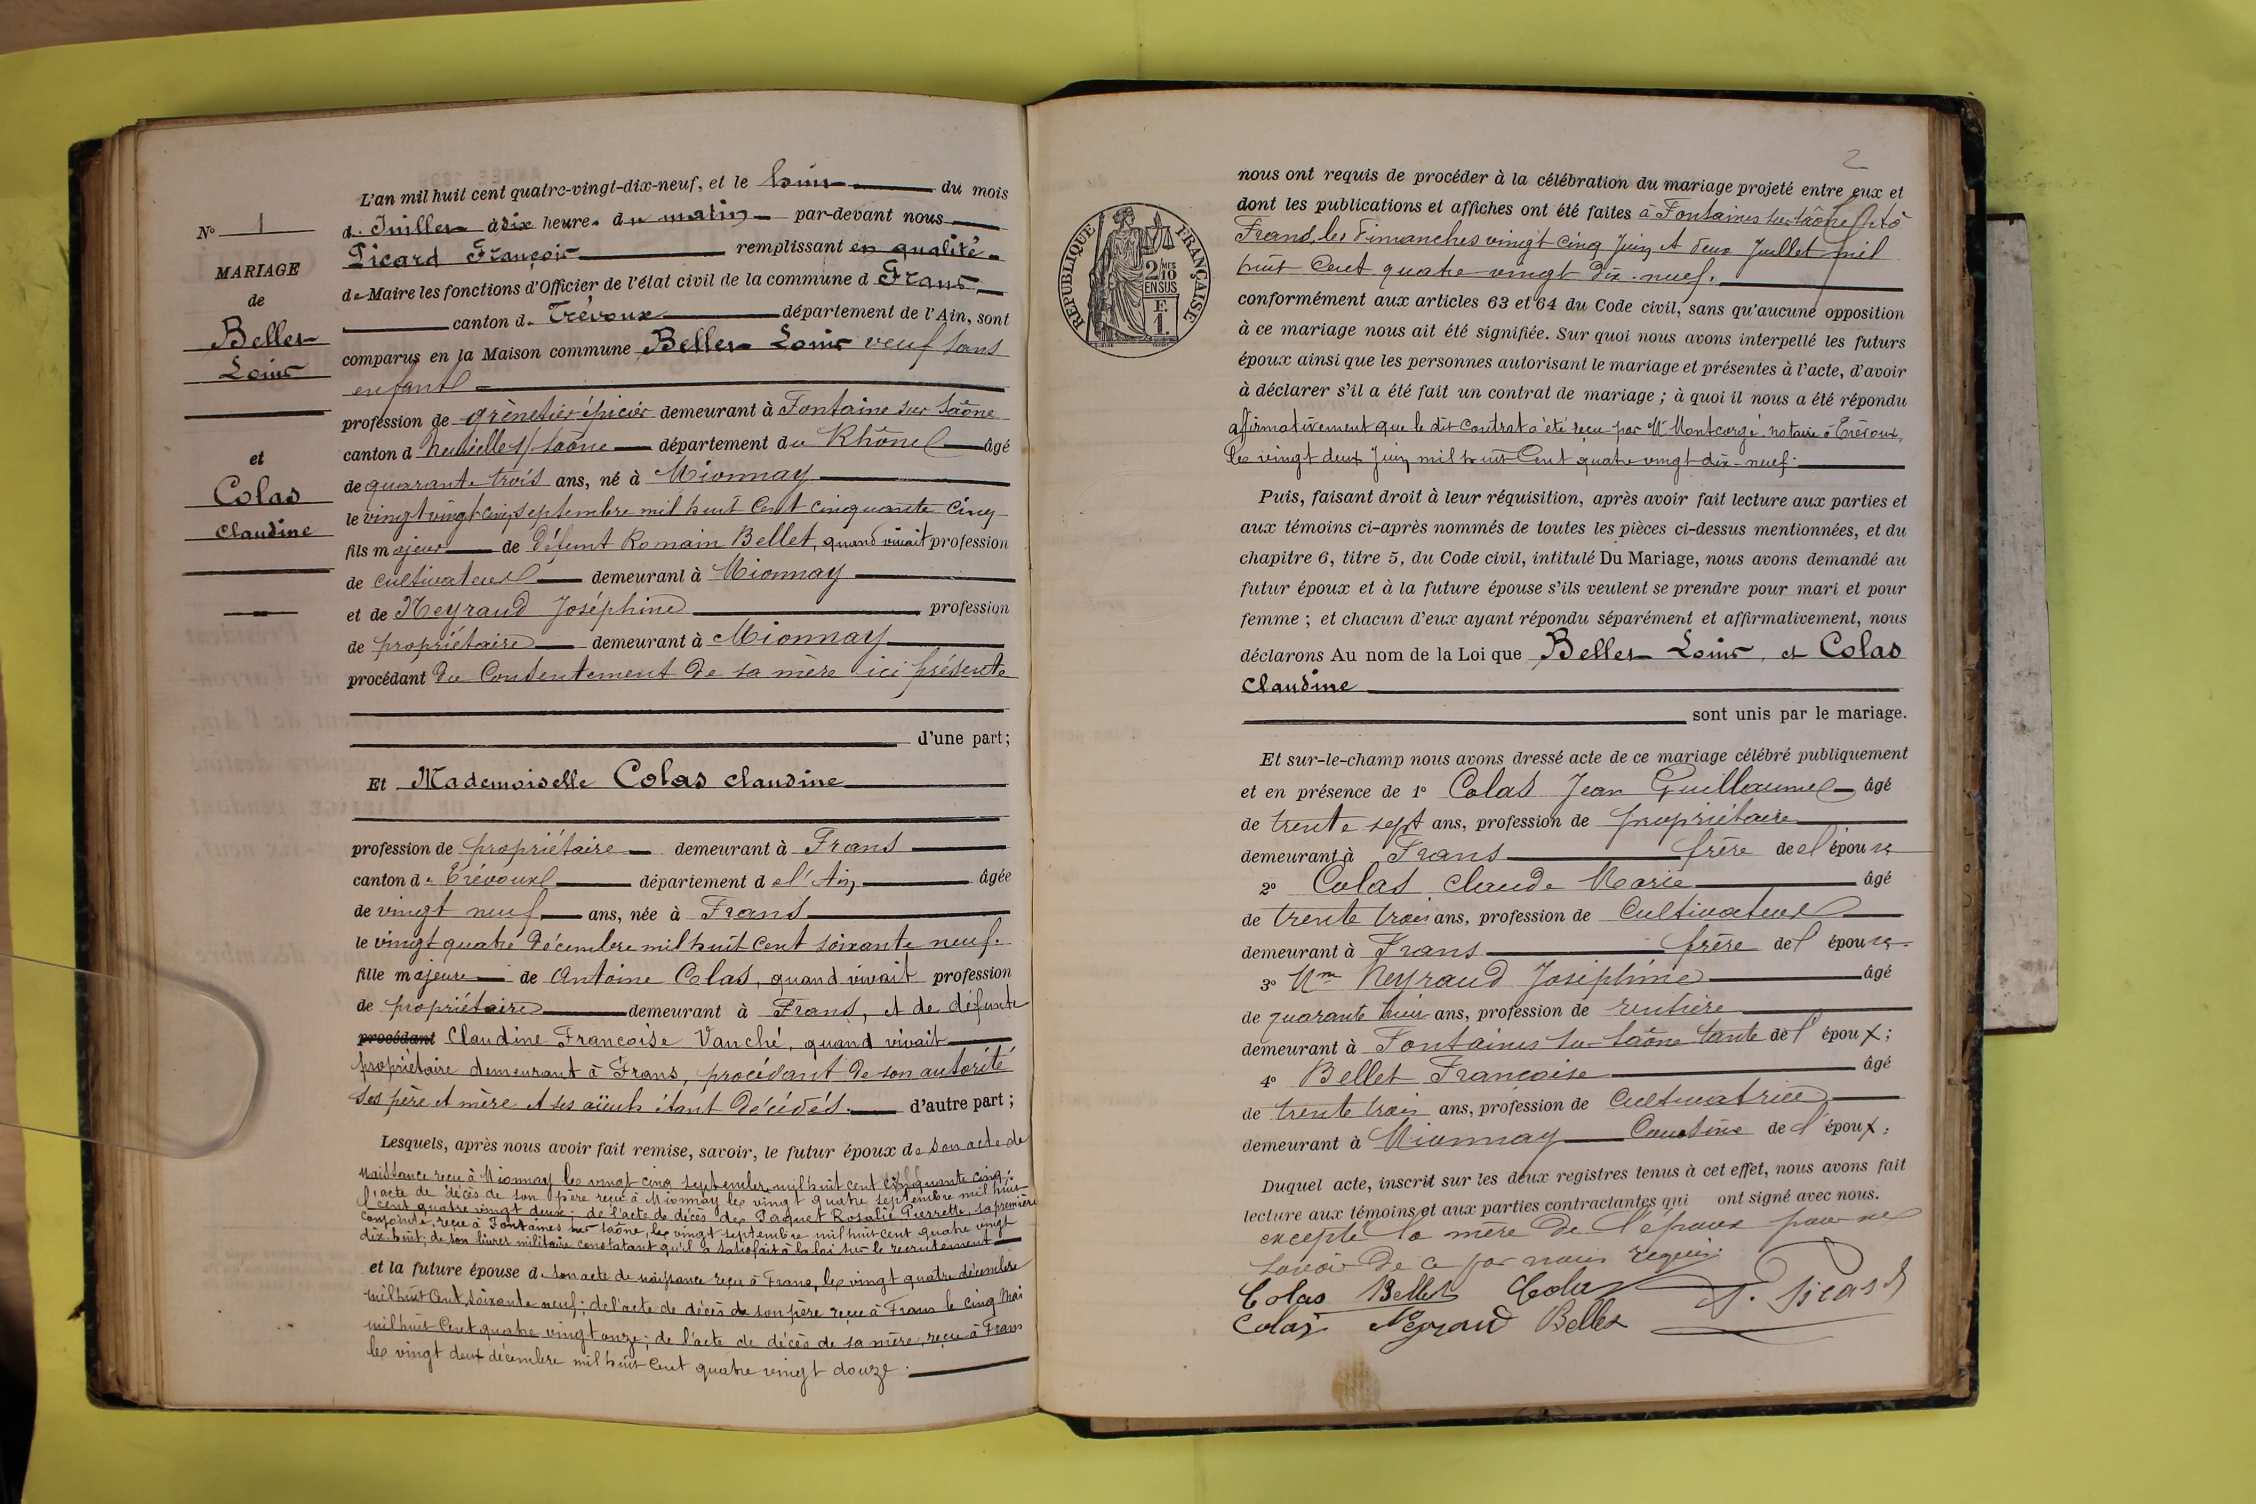 L'an mil huit cent quatre-vingt-dix-neuf, et le du mois
de Juillet à dix heures du matin par-devant nous
Picard François remplissant en qualité
de Maire les fonctions d'Officier de l'état civil de la commune d Frans
canton de Trévoux département de l'Ain, sont
comparus en la Maison commune Bellet Louis veuf sans
enfant
profession de grènetier épicier demeurant à Fontaine sur Saône
canton d Neuville s/ Saône département du Rhône âgé
de quarante trois ans, né à Mionnay
le vingt vingt cinq septembre mil huit cent cinquante cinq
fils majeur de défunt Romain Bellet, quand vivait profession
de cultivateur demeurant à Mionnay
et de Neyraud Joséphine profession
de propriétaire demeurant à Mionnay
procédant du consentement de sa mère ici présente
d'une part;
Et Mademoiselle Colas Claudine
profession de propriétaire demeurant à Frans
canton de Trévoux département de l'Ain âgée
de vingt neuf ans, née à Frans
le vingt quatre décembre mil huit cent soixante neuf.
fille majeure de Antoine Colas, quand vivait profession
de propriétaire demeurant à Frans, et de défunte
procédant Claudine Françoise Vanché, quand vivait
propriétaire demeurant à Frans, procédant de son autorité
ses père et mère et ses aïeuls étant décédés. d'autre part;
Lesquels, après nous avoir fait remise, savoir, le futur époux de son acte de
naissance reçu à Mionnay le vingt cinq septembre mil huit cent cinquante cinq;
l'acte de décès de son père reçu à Mionnay le vingt quatre septembre mil huit
cent quatre vingt deux; de l'acte de décès de Paquet Rosalie Pierrette, sa première
conjointe, reçu à Fontaines sur Saône, le vingt septembre mil huit cent quatre vingt
dix-huit; de son livret militaire constatant qu'il a satisfait à la loi sur le recrutement
et la future épouse de son acte de naissance reçu à Frans, le vingt quatre décembre
mil huit cent soixante neuf; de l'acte de décès de son père, reçu à Frans le cinq Mai
mil huit cent quatre vingt onze; de l'acte de décès de sa mère, reçu à Frans
le vingt deux décembre mil huit cent quatre vingt douze.
N° 1
MARIAGE
de
Bellet
Louis
et
Colas
Claudine
2
RÉPUBLIQUE FRANÇAISE
2 MES
10
EN SUS
F.
1.
nous ont requis de procéder à la célébration du mariage projeté entre eux et
dont les publications et affiches ont été faites à Fontaines sur Saône et à
Frans, les dimanches vingt cinq Juin et deux Juillet mil
huit cent quatre vingt dix-neuf.
conformément aux articles 63 et 64 du Code civil, sans qu'aucune opposition
à ce mariage nous ait été signifiée. Sur quoi nous avons interpellé les futurs
époux ainsi que les personnes autorisant le mariage et présentes à l'acte, d'avoir
à déclarer s'il a été fait un contrat de mariage; à quoi il nous a été répondu
affirmativement que le dit contrat a été reçu par Me Montcorgé notaire à Trévoux,
le vingt deux Juin mil huit cent quatre vingt dix-neuf.
Puis, faisant droit à leur réquisition, après avoir fait lecture aux parties et
aux témoins ci-après nommés de toutes les pièces ci-dessus mentionnées, et du
chapitre 6, titre 5, du Code civil, intitulé Du Mariage, nous avons demandé au
futur époux et à la future épouse s'ils veulent se prendre pour mari et pour
femme; et chacun d'eux ayant répondu séparément et affirmativement, nous
déclarons Au nom de la Loi que Bellet Louis, et Colas
Claudine
sont unis par le mariage.
Et sur-le-champ nous avons dressé acte de ce mariage célébré publiquement
et en présence de 1° Colas Jean Guillaume âgé
de trente sept ans, profession de propriétaire
demeurant à Frans frère de l'épouse
2° Colas Claude Marie âgé
de trente trois ans, profession de cultivateur
demeurant à Frans frère de l'épouse
3° Mme Neyraud Joséphine âgé
de quarante ans, profession de rentière
demeurant à Fontaines sur Saône tante de l'époux;
4° Bellet Françoise âgé
de trente trois ans, profession de cultivatrice
demeurant à Mionnay Cousine de l'époux;
Duquel acte, inscrit sur les deux registres tenus à cet effet, nous avons fait
lecture aux témoins et aux parties contractantes qui ont signé avec nous.
excepté la mère de l'époux pour ne
savoir de ce par nous requis.
Colas Bellet Colas F. Picard
Colas Neyraud Bellet